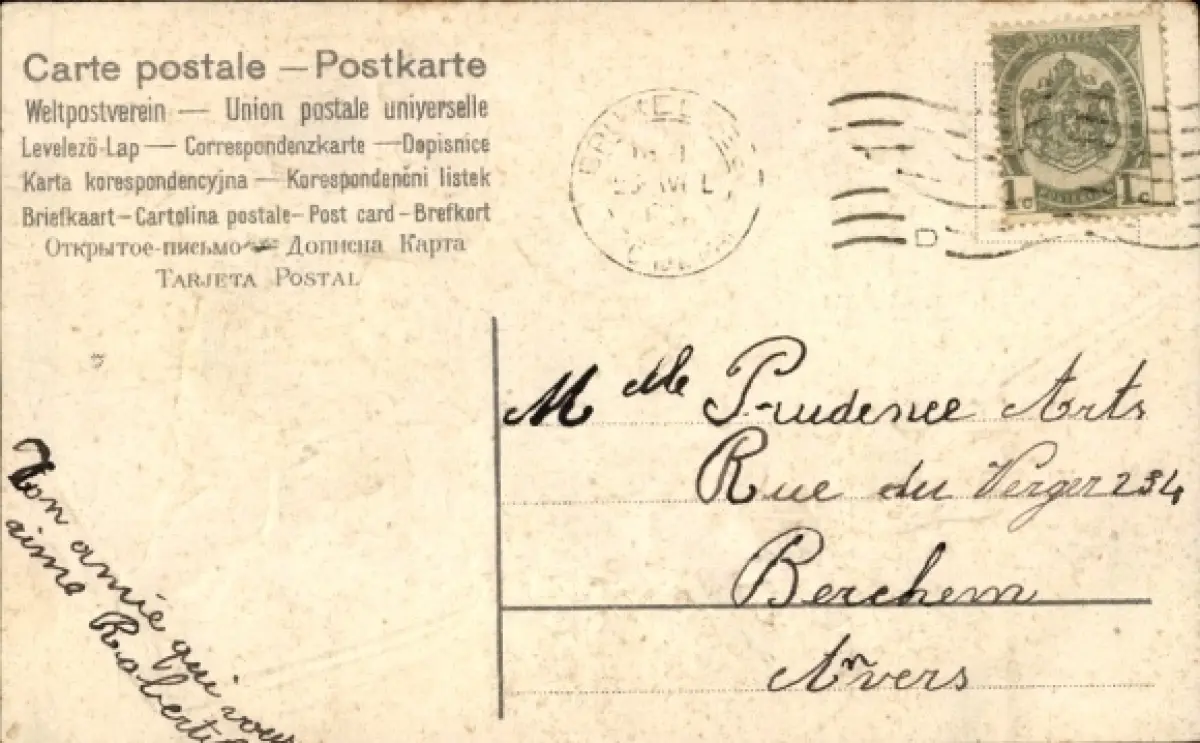 Carte postale — Postkarte
Weltpostverein — Union postale universelle
Levelező Lap — Correspondenzkarte — Dopisnice
Karta korespondencyjna — Korespondenčni listek
Briefkaart – Cartolina postale – Post card – Brefkort
Открытое-письмо — Дописна Карта
TARJETA POSTAL
POSTES
1c 1c
D
Mlle Prudence Arts
Rue du Verger 234
Berchem
Anvers
Ton amie qui vous
aime